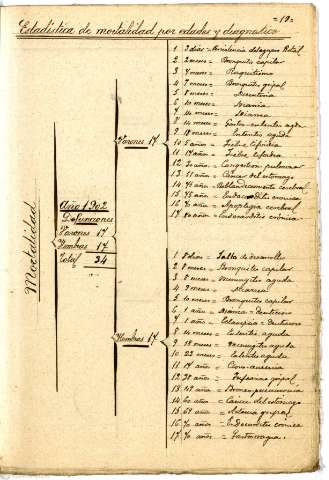 =19=
Estadística de mortalidad por edades y diagnostico
Mortalidad
Año 1902
Defunciones
Varones 17
Hembras 17
Total 34
Varones 17
1 3 días =
2 2 meses = Bronquitis capilar
3 7 meses = Raquitismo
4 7 meses = Bronquitis gripal
5 8 meses =
6 10 meses =
7 14 meses =
8 14 meses = Gastro-enteritis agda
9 18 meses = Enteritis aguda
10 5 años = Fiebre tifoidea
11 años = Fiebre tifoidea
12 años = Congestion pulmonar
13 51 años = Cáncer del estomago
14 años = Reblandecimiento cerebral
15 años = crónica
16 años = Apoplegia cerebral
17 80 años = Endocarditis crónica
Hembras 17
1 8 días = Falta de desarrollo
2 8 meses = Bronquitis capilar
3 8 meses = Meningitis aguda
4 9 meses =
5 10 meses = Bronquitis capilar
6 1 año = Denticion
7 1 año = Eclampsia = Denticion
8 14 meses = Enteritis aguda
9 18 meses = Meningitis aguda
10 23 meses = Enteritis aguda
11 años =
12 38 años = gripal
13 años = Bronco pneumonia
14 60 años = Cáncer del estomago
15 64 años = gripal
16 70 años =
17 76 años = Gastrorragia.